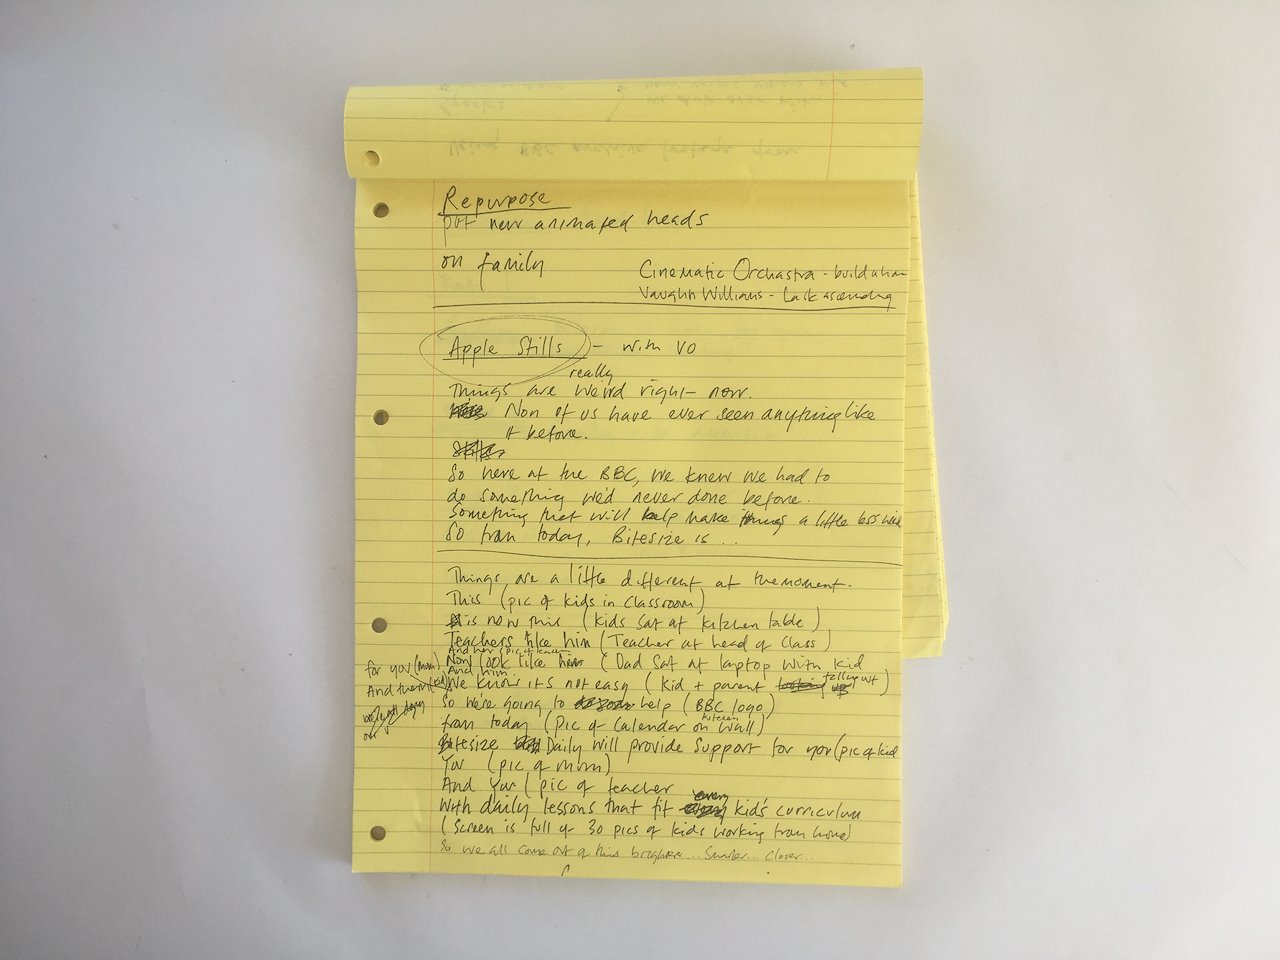 Repurpose
put new animated heads
on family
Cinematic Orchastra - build a home
Vaughn Williams - Lark ascending
Apple Stills - with VO
really
Things are weird right now.
Non of us have ever seen anything like
it before.
So here at the BBC, we knew we had to
do something we'd never done before.
Something that will help make things a little less weird
So from today, Bitesize is ...
Things are a little different at the moment.
This (pic of kids in classroom)
is now this (kids sat at kitchen table)
Teachers like him (Teacher at head of class)
And her (pic of teacher
Now look like him (Dad sat at laptop with kid
for you (mum)
And him
And them (kid)
We know it's not easy (kid + parent falling out)
So we're going to help (BBC logo)
from today (Pic of Calendar on kitchen wall)
Bitesize Daily will provide support for you (pic of kid
You (pic of mum)
And you (pic of teacher
With daily lessons that fit every kid's curriculum
(Screen is full of 30 pics of kids working from home)
So we all come out of this brighter... Smarter... Closer...